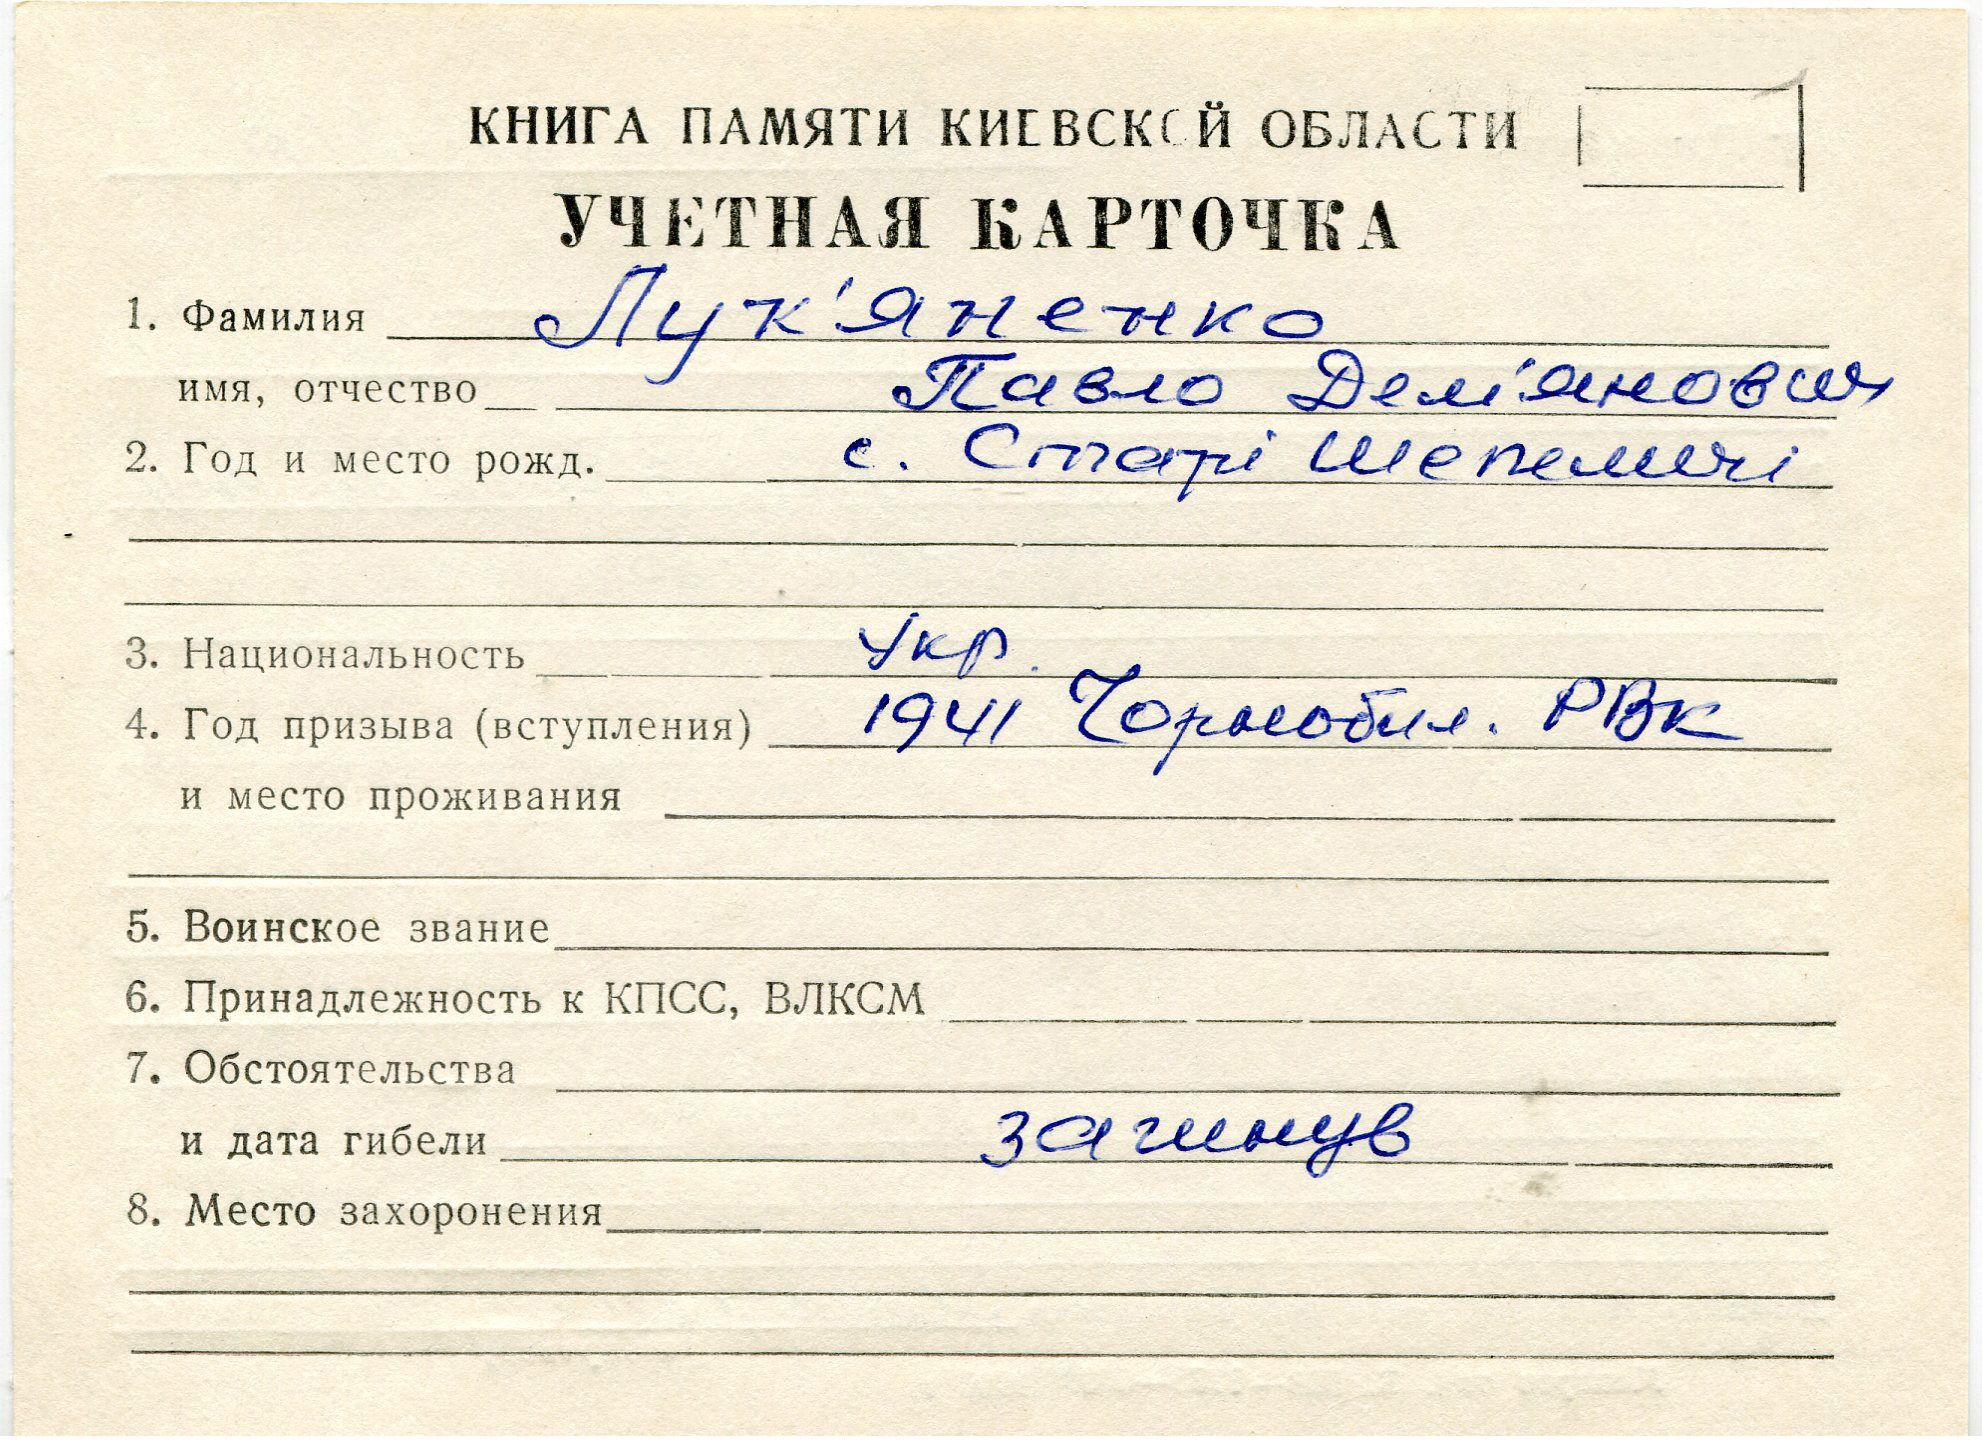 КНИГА ПАМЯТИ КИЕВСКОЙ ОБЛАСТИ
УЧЕТНАЯ КАРТОЧКА
1. Фамилия Лук'яненко
имя, отчество Павло Дем'янович
2. Год и место рожд. с. Старі Шепеличі
3. Национальность Укр.
4. Год призыва (вступления) 1941 Чорнобил. РВК
и место проживания
5. Воинское звание
6. Принадлежность к КПСС, ВЛКСМ
7. Обстоятельства
и дата гибели загинув
8. Место захоронения